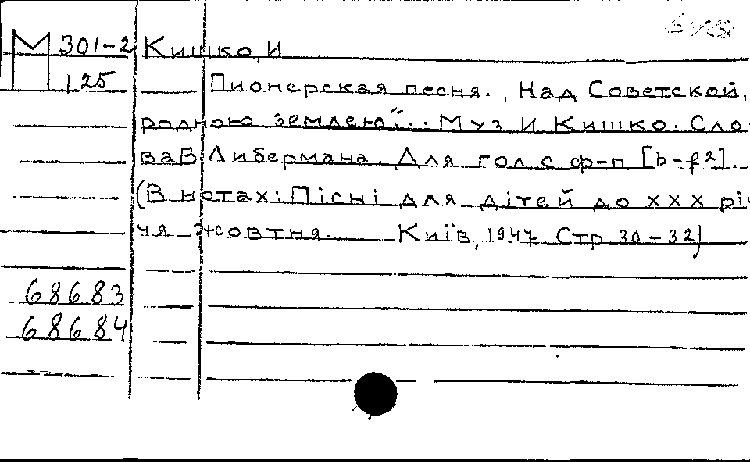 М 301-2 Кишко, И
125 Пионерская песня. „Над Советской,
родною землею". Муз И Кишко. Сло-
ва Б Либермана Для гол с ф-п [b-f2].
(В нотах: Пісні для дітей до ХХХ річ
чя Жовтня. Київ, 1947. Стр 30-32)
68683
68684